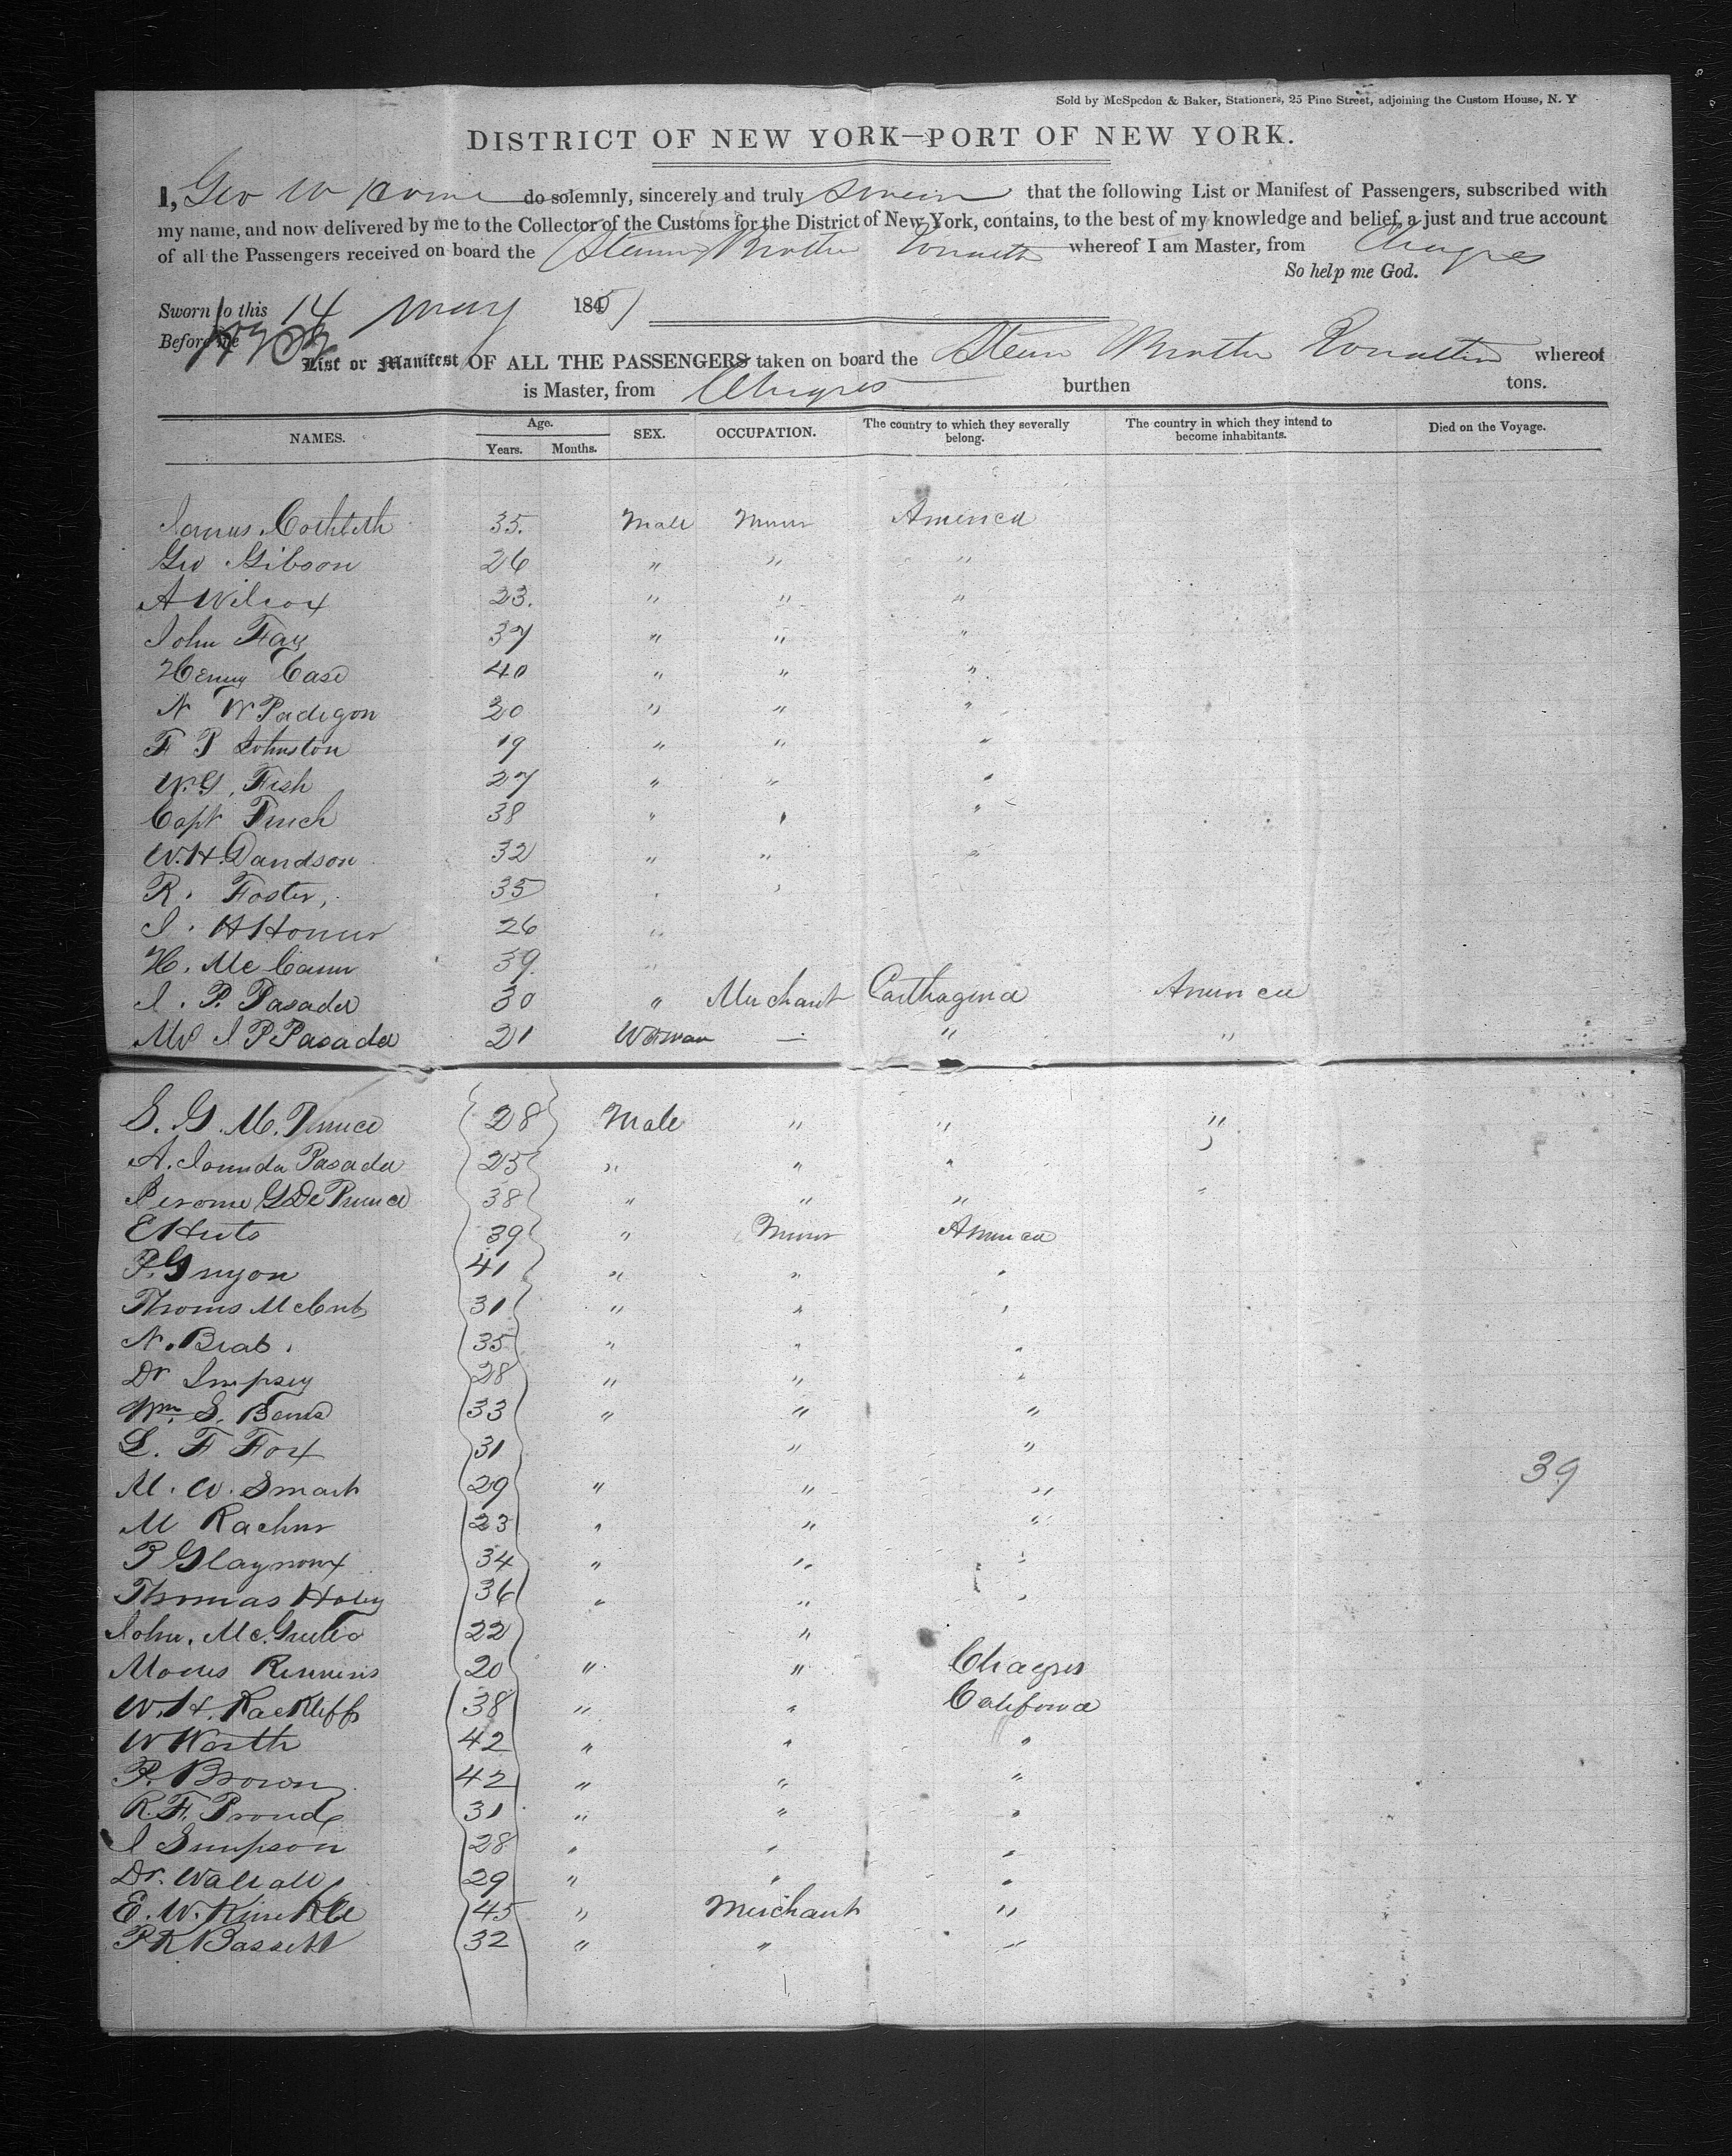 Sold by McSpedon & Baker, Stationers, 25 Pine Street, adjoining the Custom House, N. Y
DISTRICT OF NEW YORK—PORT OF NEW YORK.
I, Geo W do solemnly, sincerely and truly Swear that the following List or Manifest of Passengers, subscribed with
my name, and now delivered by me to the Collector of the Customs for the District of New York, contains, to the best of my knowledge and belief, a just and true account
of all the Passengers received on board the Steamer Brother whereof I am Master, from Chagres
So help me God.
Sworn to this 14 May 1851
Before me
List or Manifest OF ALL THE PASSENGERS taken on board the Steam Brother whereof
is Master, from Chagres burthen tons.
NAMES. Age. Years. Months. SEX. OCCUPATION. The country to which they severally belong. The country in which they intend to become inhabitants. Died on the Voyage.
James 35. Male Miner America
Geo Gibson 26 " " "
A Wilcox 23. " " "
John Fay 37 " " "
Henry Case 40 " " "
N W Padegon 20 " " "
F P Johnston 19 " " "
W. G. Fish 27 " " "
Capt Finch 38 " " "
W. H. Davidson 32 " " "
R. Foster, 35 " "
J. H Homer 26 "
H. McCann 39. "
J. P. Pasada 30 " Merchant Carthagena America
J P Pasada 21 Woman — " "
S. G. M. 28 Male " " "
A. Pasada 25 " " " "
Jerome G De 38 " " " "
E 39 " Miner America
P. Guyon 41 " " "
Thoms 31 " " "
N. 35 " " "
Dr 28 " " "
Wm. S. 33 " " "
L. F Fox 31 " "
M. W. Smart 29 " " " 39
M 23 " " "
P 34 " " "
Thomas 36 " " "
John. 22 "
20 " " Chagres
W. H. Rackliff 38 " " California
W Worth 42 " " "
P. Brown 42 " " "
R. F. Proud 31 " " "
J Simpson 28 " " "
Dr. 29 " " "
E. W. 45 " Merchant "
P K Bassett 32 " " "